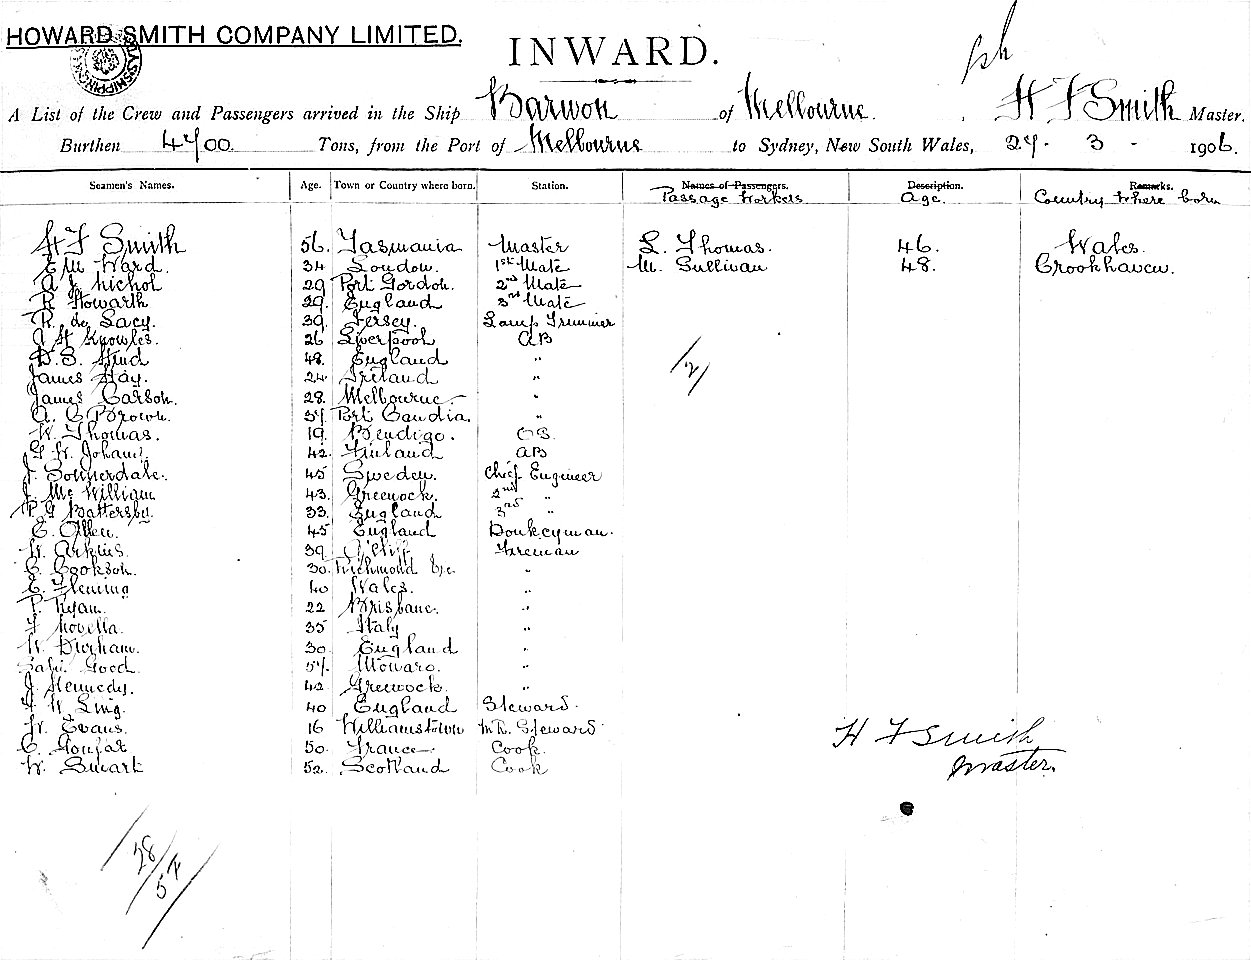 HOWARD SMITH COMPANY LIMITED.
INWARD.
A List of the Crew and Passengers arrived in the Ship Barwon of Melbourne. H F Smith Master.
Burthen Tons, from the Port of Melbourne to Sydney, New South Wales, 27 - 3 - 1906.
Seamen's Names. Age. Town or Country where born. Station. Names of Passengers. Description. Remarks.
Passage Workers Age. Country where born
H F Smith 56. Tasmania Master L. Thomas. 46. Wales.
E M Ward. 34 London. 1st Mate M. Sullivan 48. Crookhaven.
A J Nichol 29 Port Gordon. 2nd Mate
R Howarth 29. England 3rd Mate
R. de Lacy. 39. Jersey. Lamp Trimmer
A H Knowles. 26 Liverpool AB
D. S. Hind 48. England "
James Hay. 24. Ireland "
James Carson. 28. Melbourne. "
A. C Brown. 37. Port Caudia. "
W. Thomas. 19. Bendigo. OS.
G W. Johans. 42. Finland AB
J. Sonnerdale. 45 Sweden. Chief Engineer
J. Mc William 43. Greenock. 2nd "
P G Battersby. 33. England 3rd "
E. Offen. 45 England Donkeyman.
W. Arkins. 39. Fireman
C. Cookson. 30. Richmond "
E. Fleming 40 Wales. "
P. Ryan. 22 Brisbane. "
F Novella. 35 Italy "
W. Durham. 30. England "
Good. 57. Monaro. "
J. Kennedy. 42 Greenock. "
F W Ling. 40 England Steward.
W. Evans. 16 Williamstown M.R. Steward
C. 50. France. Cook.
W. Smart 52. Scotland Cook
/2/
H F Smith
Master.
28/
57